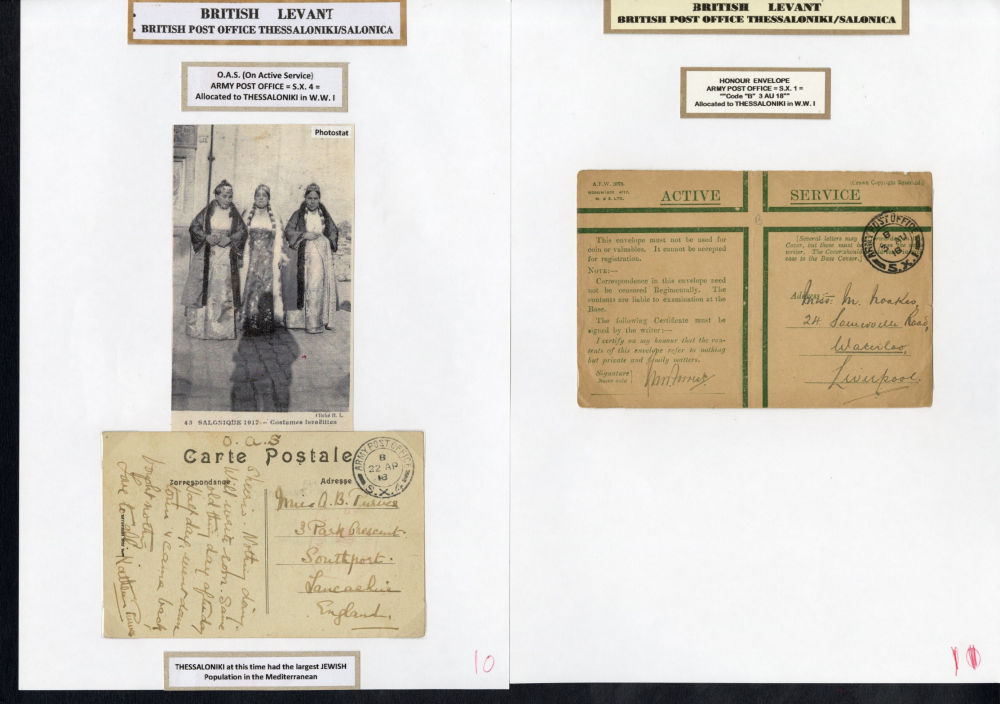 BRITISH LEVANT
BRITISH POST OFFICE THESSALONIKI/SALONICA
O.A.S. (On Active Service)
ARMY POST OFFICE = S.X. 4 =
Allocated to THESSALONIKI in W.W. I
Photostat
Cliché H. L.
43 SALONIQUE 1917 - Costumes Israélites
O.A.S
Carte Postale
Correspondance
Adresse
ARMY POST OFFICE
B
22 AP
18
S.X.4.
Cheerio. Nothing doing.
Will write soon. Same
old thing day after day
Half day, went down
town & came back
bought nothing
Love to all.
Miss A. B. Turner
3 Park Crescent.
Southport.
Lancashire
England.
THESSALONIKI at this time had the largest JEWISH
Population in the Mediterranean
10
BRITISH LEVANT
BRITISH POST OFFICE THESSALONIKI/SALONICA
HONOUR ENVELOPE
ARMY POST OFFICE = S.X. 1 =
""Code "B" 3 AU 18""
Allocated to THESSALONIKI in W.W. I
A.F.W. 3078.
(Crown Copyright Reserved)
ACTIVE SERVICE
This envelope must not be used for
coin or valuables. It cannot be accepted
for registration.
NOTE:—
Correspondence in this envelope need
not be censored Regimentally. The
contents are liable to examination at the
Base.
The following Certificate must be
signed by the writer:—
I certify on my honour that the con-
tents of this envelope refer to nothing
but private and family matters.
Signature
Name only
[Several letters may
Cover, but these must be
writer. The Cover should
esse to the Base Censor.]
ARMY POST OFFICE
B
AU
18
S.X.
Address
Miss. M.
24
Road,
Waterloo,
Liverpool.